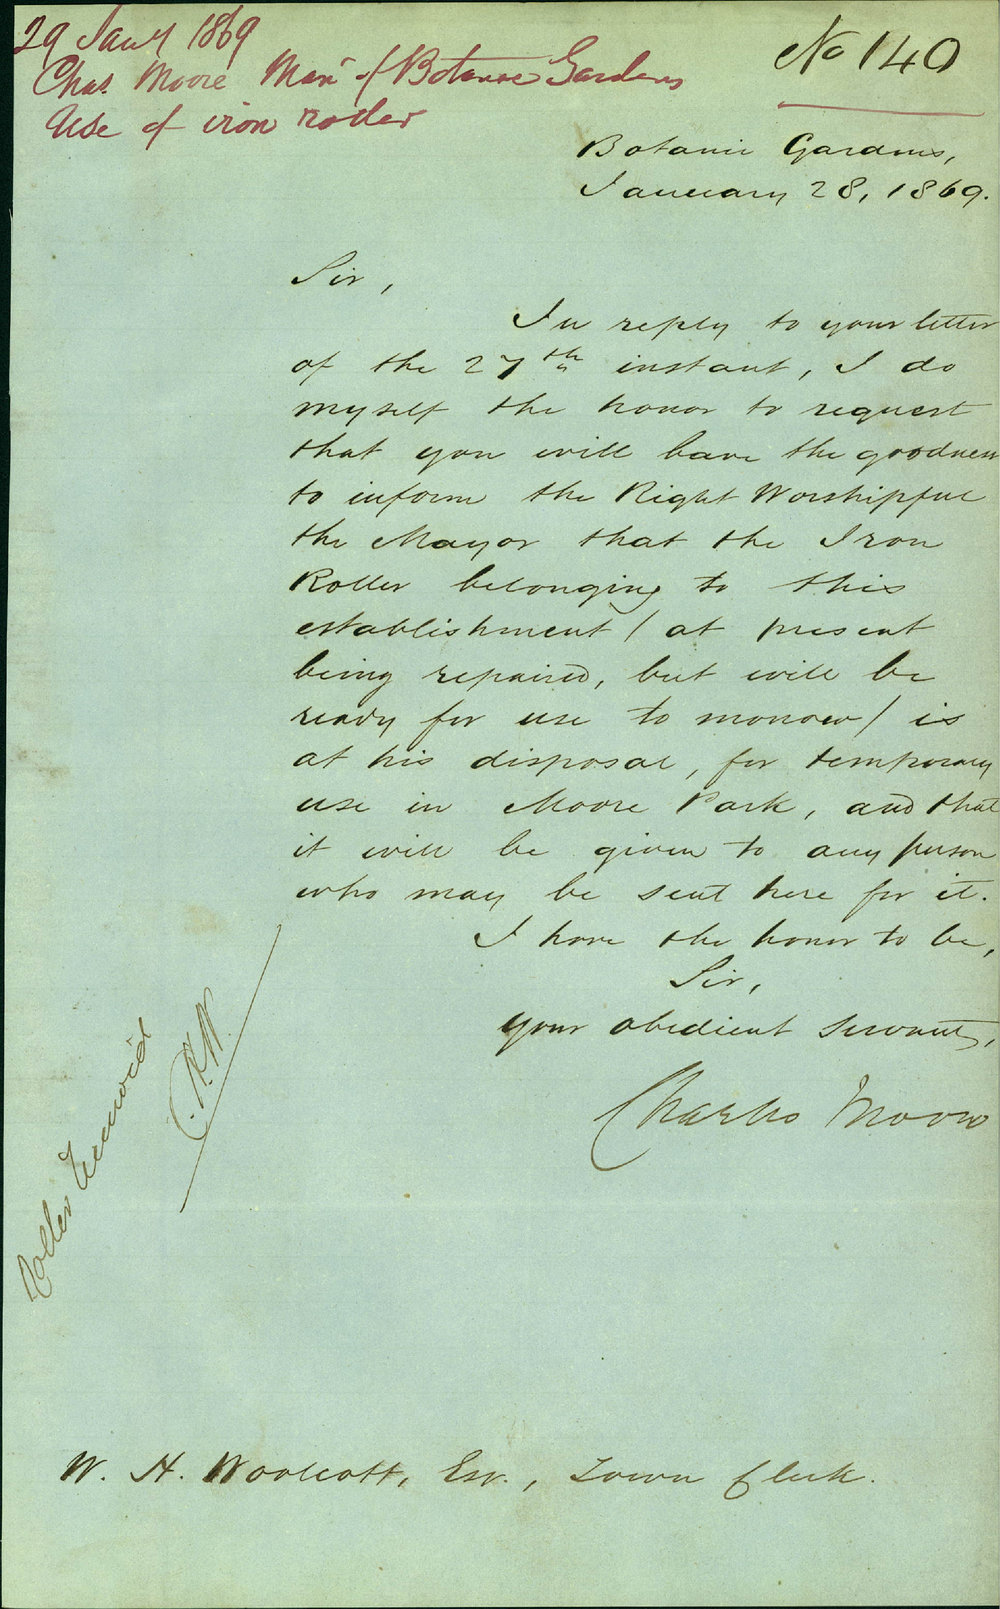 29 Jany 1869
Chas. Moore Manr of Botanic Gardens
Use of iron roller
No 140
Botanic Gardens,
January 28, 1869.
Sir,
In reply to your letter
of the 27th instant, I do
myself the honor to request
that you will have the goodness
to inform the Right Worshipful
the Mayor that the Iron
Roller belonging to this
establishment / at present
being repaired, but will be
ready for use to morrow / is
at his disposal, for temporary
use in Moore Park, and that
it will be given to any person
who may be sent here for it.
I have the honor to be,
Sir,
Your obedient Servant,
Charles Moore
Roller
W. H. Woolcott, Esr., Town Clerk.